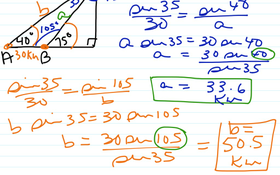 b a 35
40° 105° 75°
A 30km B
sin 35 = sin 40
30 a
a sin 35 = 30 sin 40
a = 30 sin 40
sin 35
a = 33.6
Km
sin 35 = sin 105
30 b
b sin 35 = 30 sin 105
b = 30 sin 105 = b =
sin 35 50.5
Km